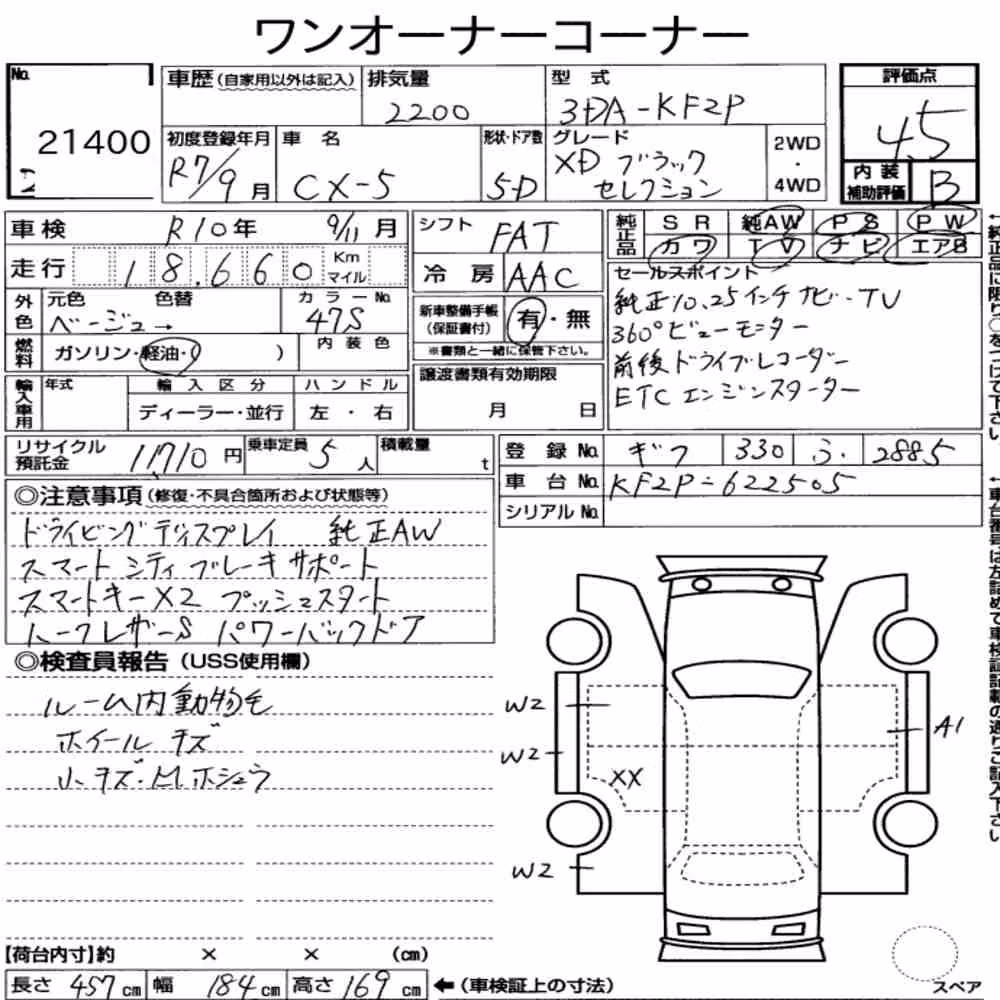 ワンオーナーコーナー
No.
21400
車歴(自家用以外は記入)
排気量
2200
型式
3DA-KF2P
評価点
4.5
内装補助評価 B
初度登録年月
R7/9月
車名
CX-5
形状・ドア数
5D
グレード
XD ブラック
セレクション
2WD
・
4WD
車検 R10年 9/11月
シフト FAT
純正品
SR 純AW PS PW
カワ TV ナビ エアB
走行 18,660 Km マイル
冷房 AAC
セールスポイント
純正10.25インチナビ・TV
360°ビューモニター
前後ドライブレコーダー
ETC エンジンスターター
外色
元色 色替
ベージュ→
カラーNo.
47S
新車整備手帳
(保証書付)
有・無
※書類と一緒に保管下さい。
燃料
ガソリン・軽油・( )
内装色
譲渡書類有効期限
月 日
輸入車用
年式
輸入区分
ディーラー・並行
ハンドル
左・右
リサイクル預託金 11,710円
乗車定員 5人
積載量 t
登録No. ギフ 330 ふ 2885
車台No. KF2P-622505
シリアルNo.
◎注意事項(修復・不具合箇所および状態等)
ドライビングディスプレイ 純正AW
スマートシティブレーキサポート
スマートキーX2 プッシュスタート
ハーフレザーS パワーバックドア
◎検査員報告(USS使用欄)
ルーム内動物毛
ホイールキズ
小キズ・
W2
W2
XX
W2
A1
【荷台内寸】約 × × (cm)
長さ 457cm 幅 184cm 高さ 169cm ←(車検証上の寸法)
スペア
←純正品に限り○をつけて下さい
←車台番号は左詰めで車検証記載の通りご記入下さい